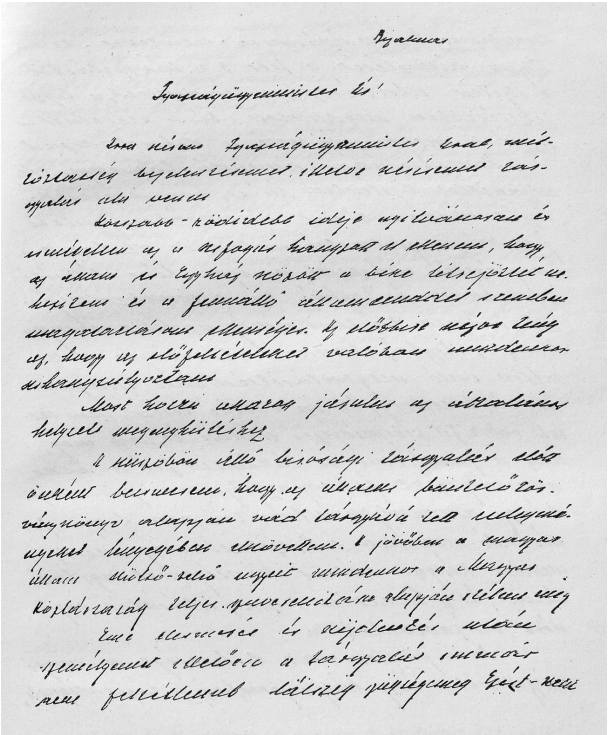 Bizalmas
Igazságügyminiszter Úr!
Arra kérem Igazságügyminiszter Urat, mél-
tóztassék bejelentésemet, illetve kérésemet tár-
gyalás alá venni
Hosszabb-rövidebb ideje nyilvánosan és
ismételten az a kifogás hangzott el ellenem, hogy
az állam és Egyház között a béke létrejöttét ne-
hezítem és a fennálló államrenddel szemben
magatartásom ellenséges. Az előbbire nézve tény
az, hogy az előfeltételeket valóban mindenkor
kihangsúlyoztam
Most hozzá akarok járulni az általános
helyzet megenyhüléséhez
A küszöbön álló bírósági tárgyalás előtt
önként beismerem, hogy az állam büntetőtör-
vénykönyv alapján vád tárgyává tett cselekmé-
nyeket lényegében elkövettem. A jövőben a magyar
állam külső-belső ügyeit mindenkor a Magyar
Köztársaság teljes szuverenitása alapján ítélem meg
Eme elismerés és kijelentés után
személyemet illetőleg a tárgyalás immár
nem feltétlenül látszik szükségesnek Ezért - nem